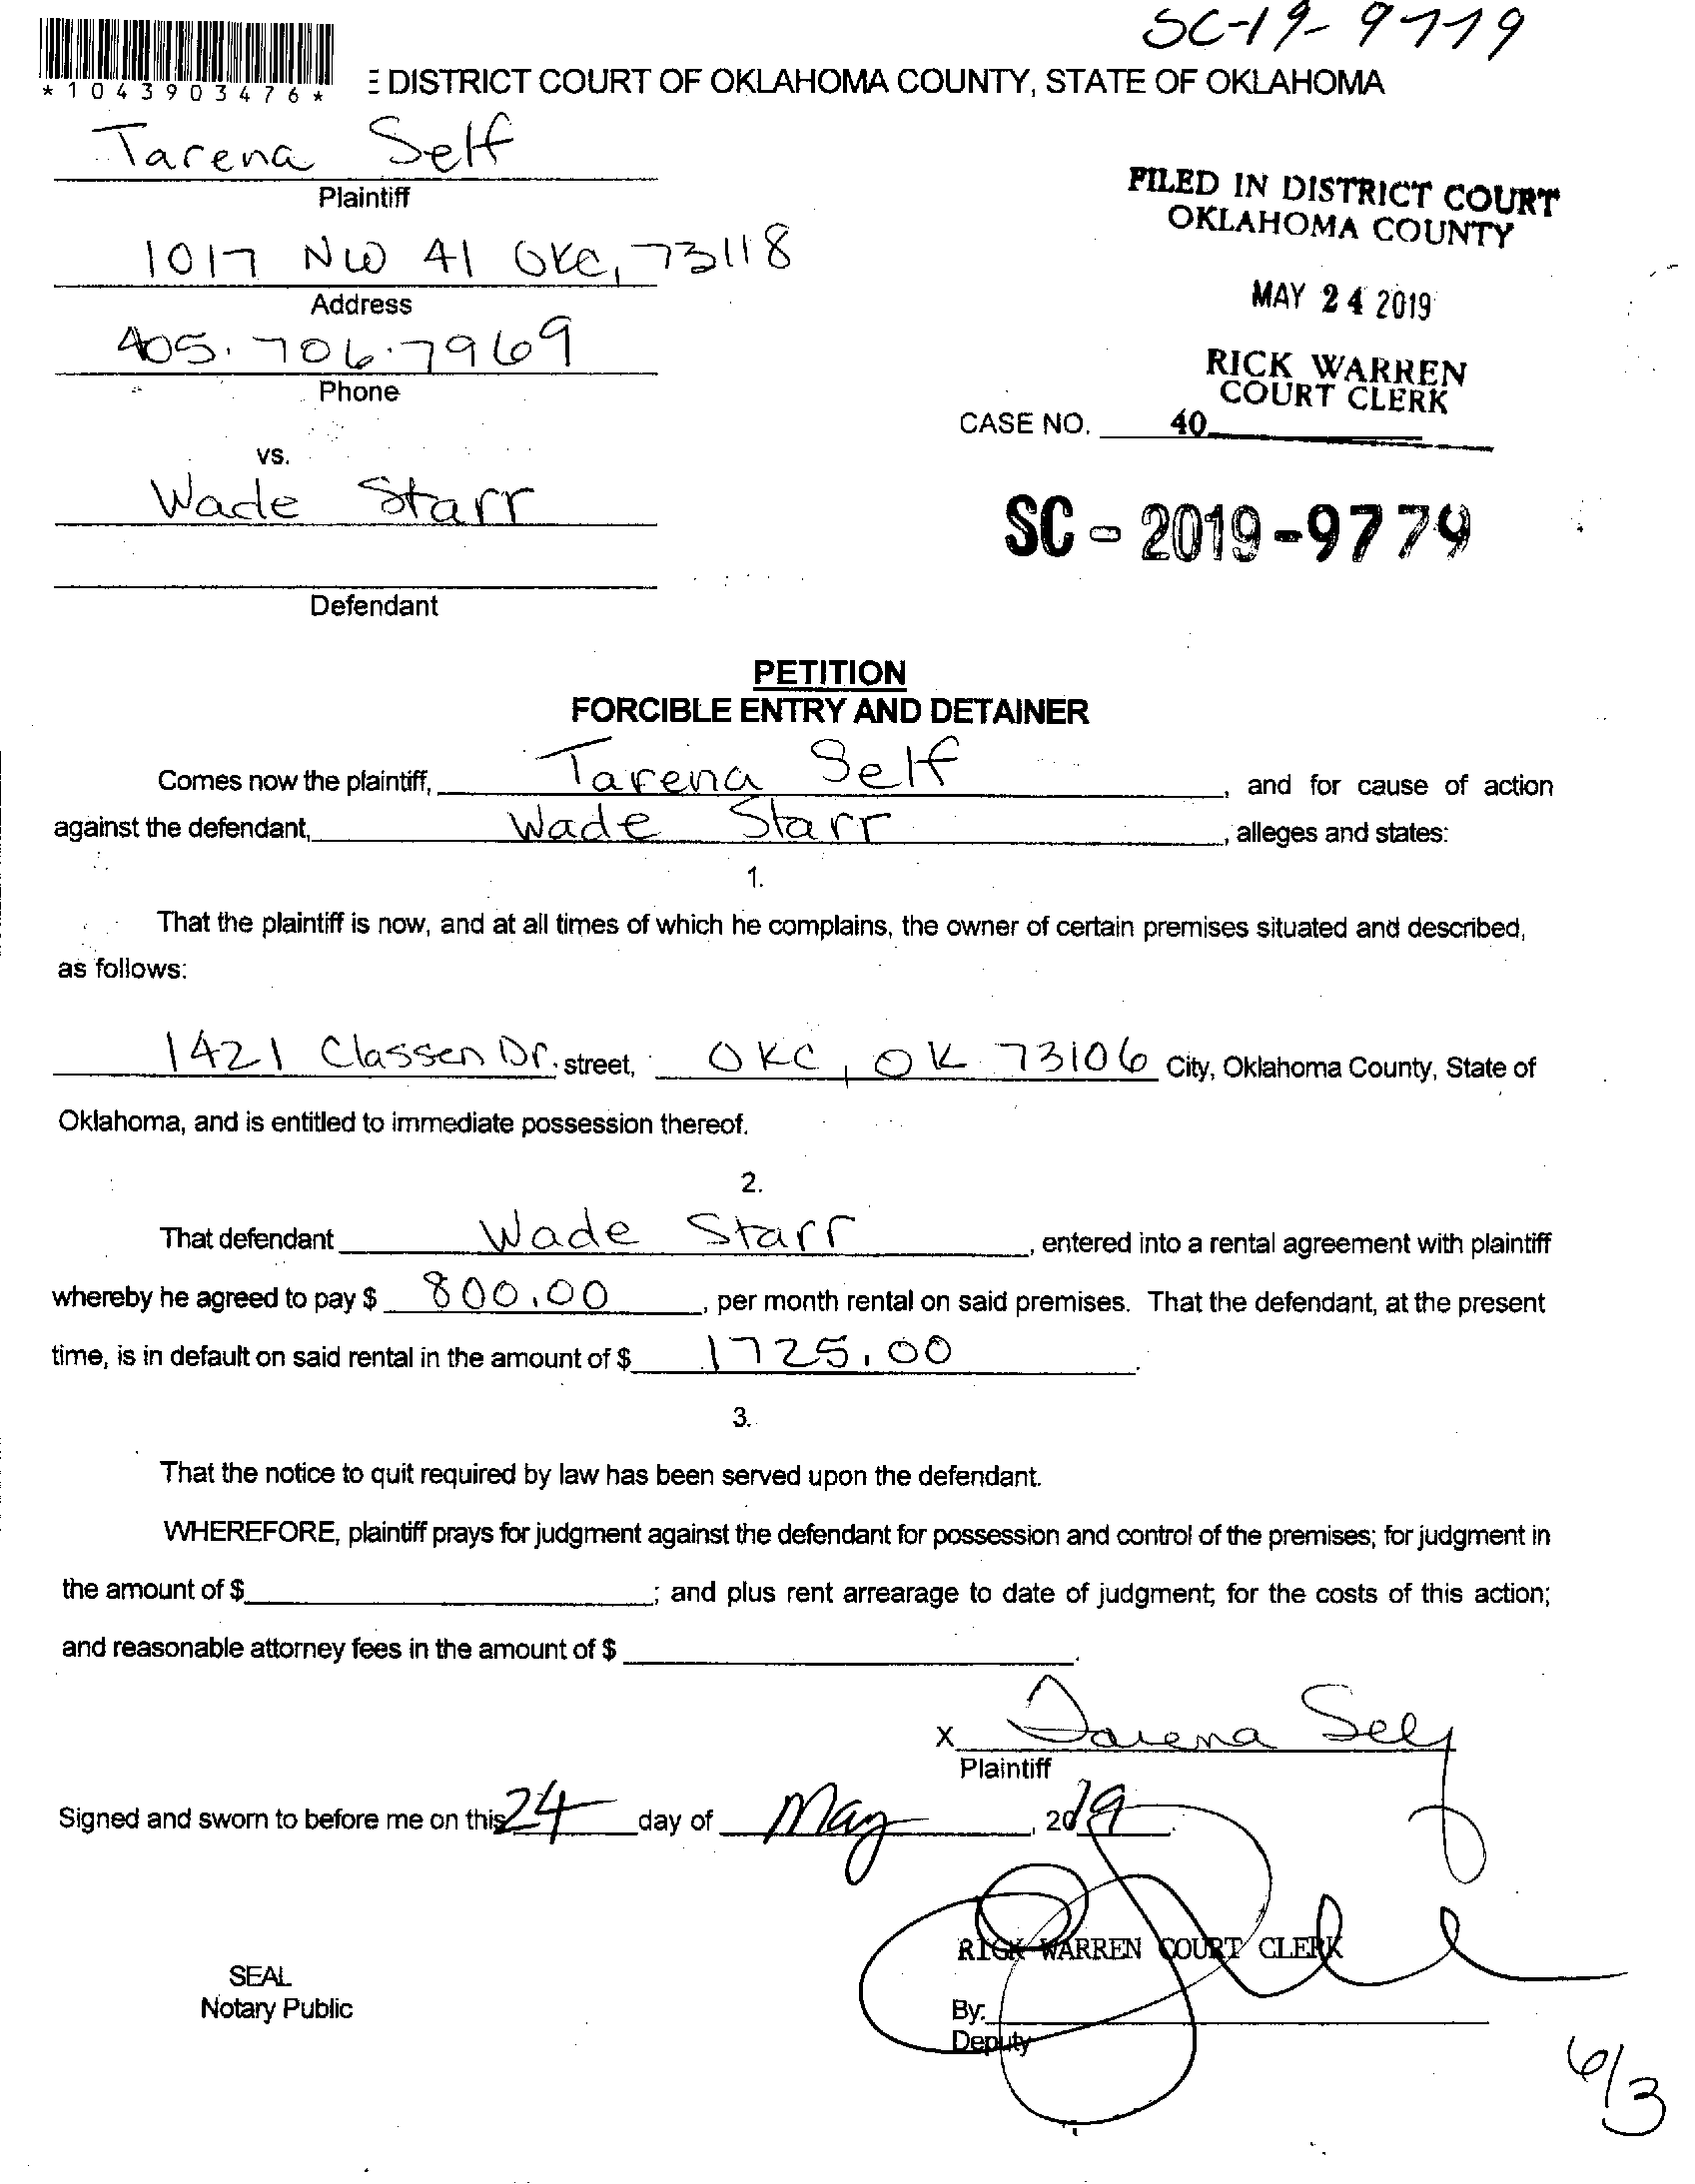 SC-19-9779
*1043903476*
E DISTRICT COURT OF OKLAHOMA COUNTY, STATE OF OKLAHOMA
Tarena Self
Plaintiff
FILED IN DISTRICT COURT
OKLAHOMA COUNTY
1017 NW 41 OKC, 73118
Address
MAY 24 2019
405.706.7969
Phone
RICK WARREN
COURT CLERK
CASE NO. 40
vs.
Wade Starr
SC-2019-9779
Defendant
PETITION
FORCIBLE ENTRY AND DETAINER
Comes now the plaintiff, Tarena Self, and for cause of action
against the defendant, Wade Starr, alleges and states:
1.
That the plaintiff is now, and at all times of which he complains, the owner of certain premises situated and described,
as follows:
1421 Classen Dr. street, OKC, OK 73106 City, Oklahoma County, State of
Oklahoma, and is entitled to immediate possession thereof.
2.
That defendant Wade Starr, entered into a rental agreement with plaintiff
whereby he agreed to pay $ 800.00, per month rental on said premises. That the defendant, at the present
time, is in default on said rental in the amount of $ 1725.00.
3.
That the notice to quit required by law has been served upon the defendant.
WHEREFORE, plaintiff prays for judgment against the defendant for possession and control of the premises; for judgment in
the amount of $; and plus rent arrearage to date of judgment; for the costs of this action;
and reasonable attorney fees in the amount of $.
X Tarena Self
Plaintiff
Signed and sworn to before me on this 24 day of May, 2019.
RICK WARREN COURT CLERK
SEAL
Notary Public
By:
Deputy
6/3